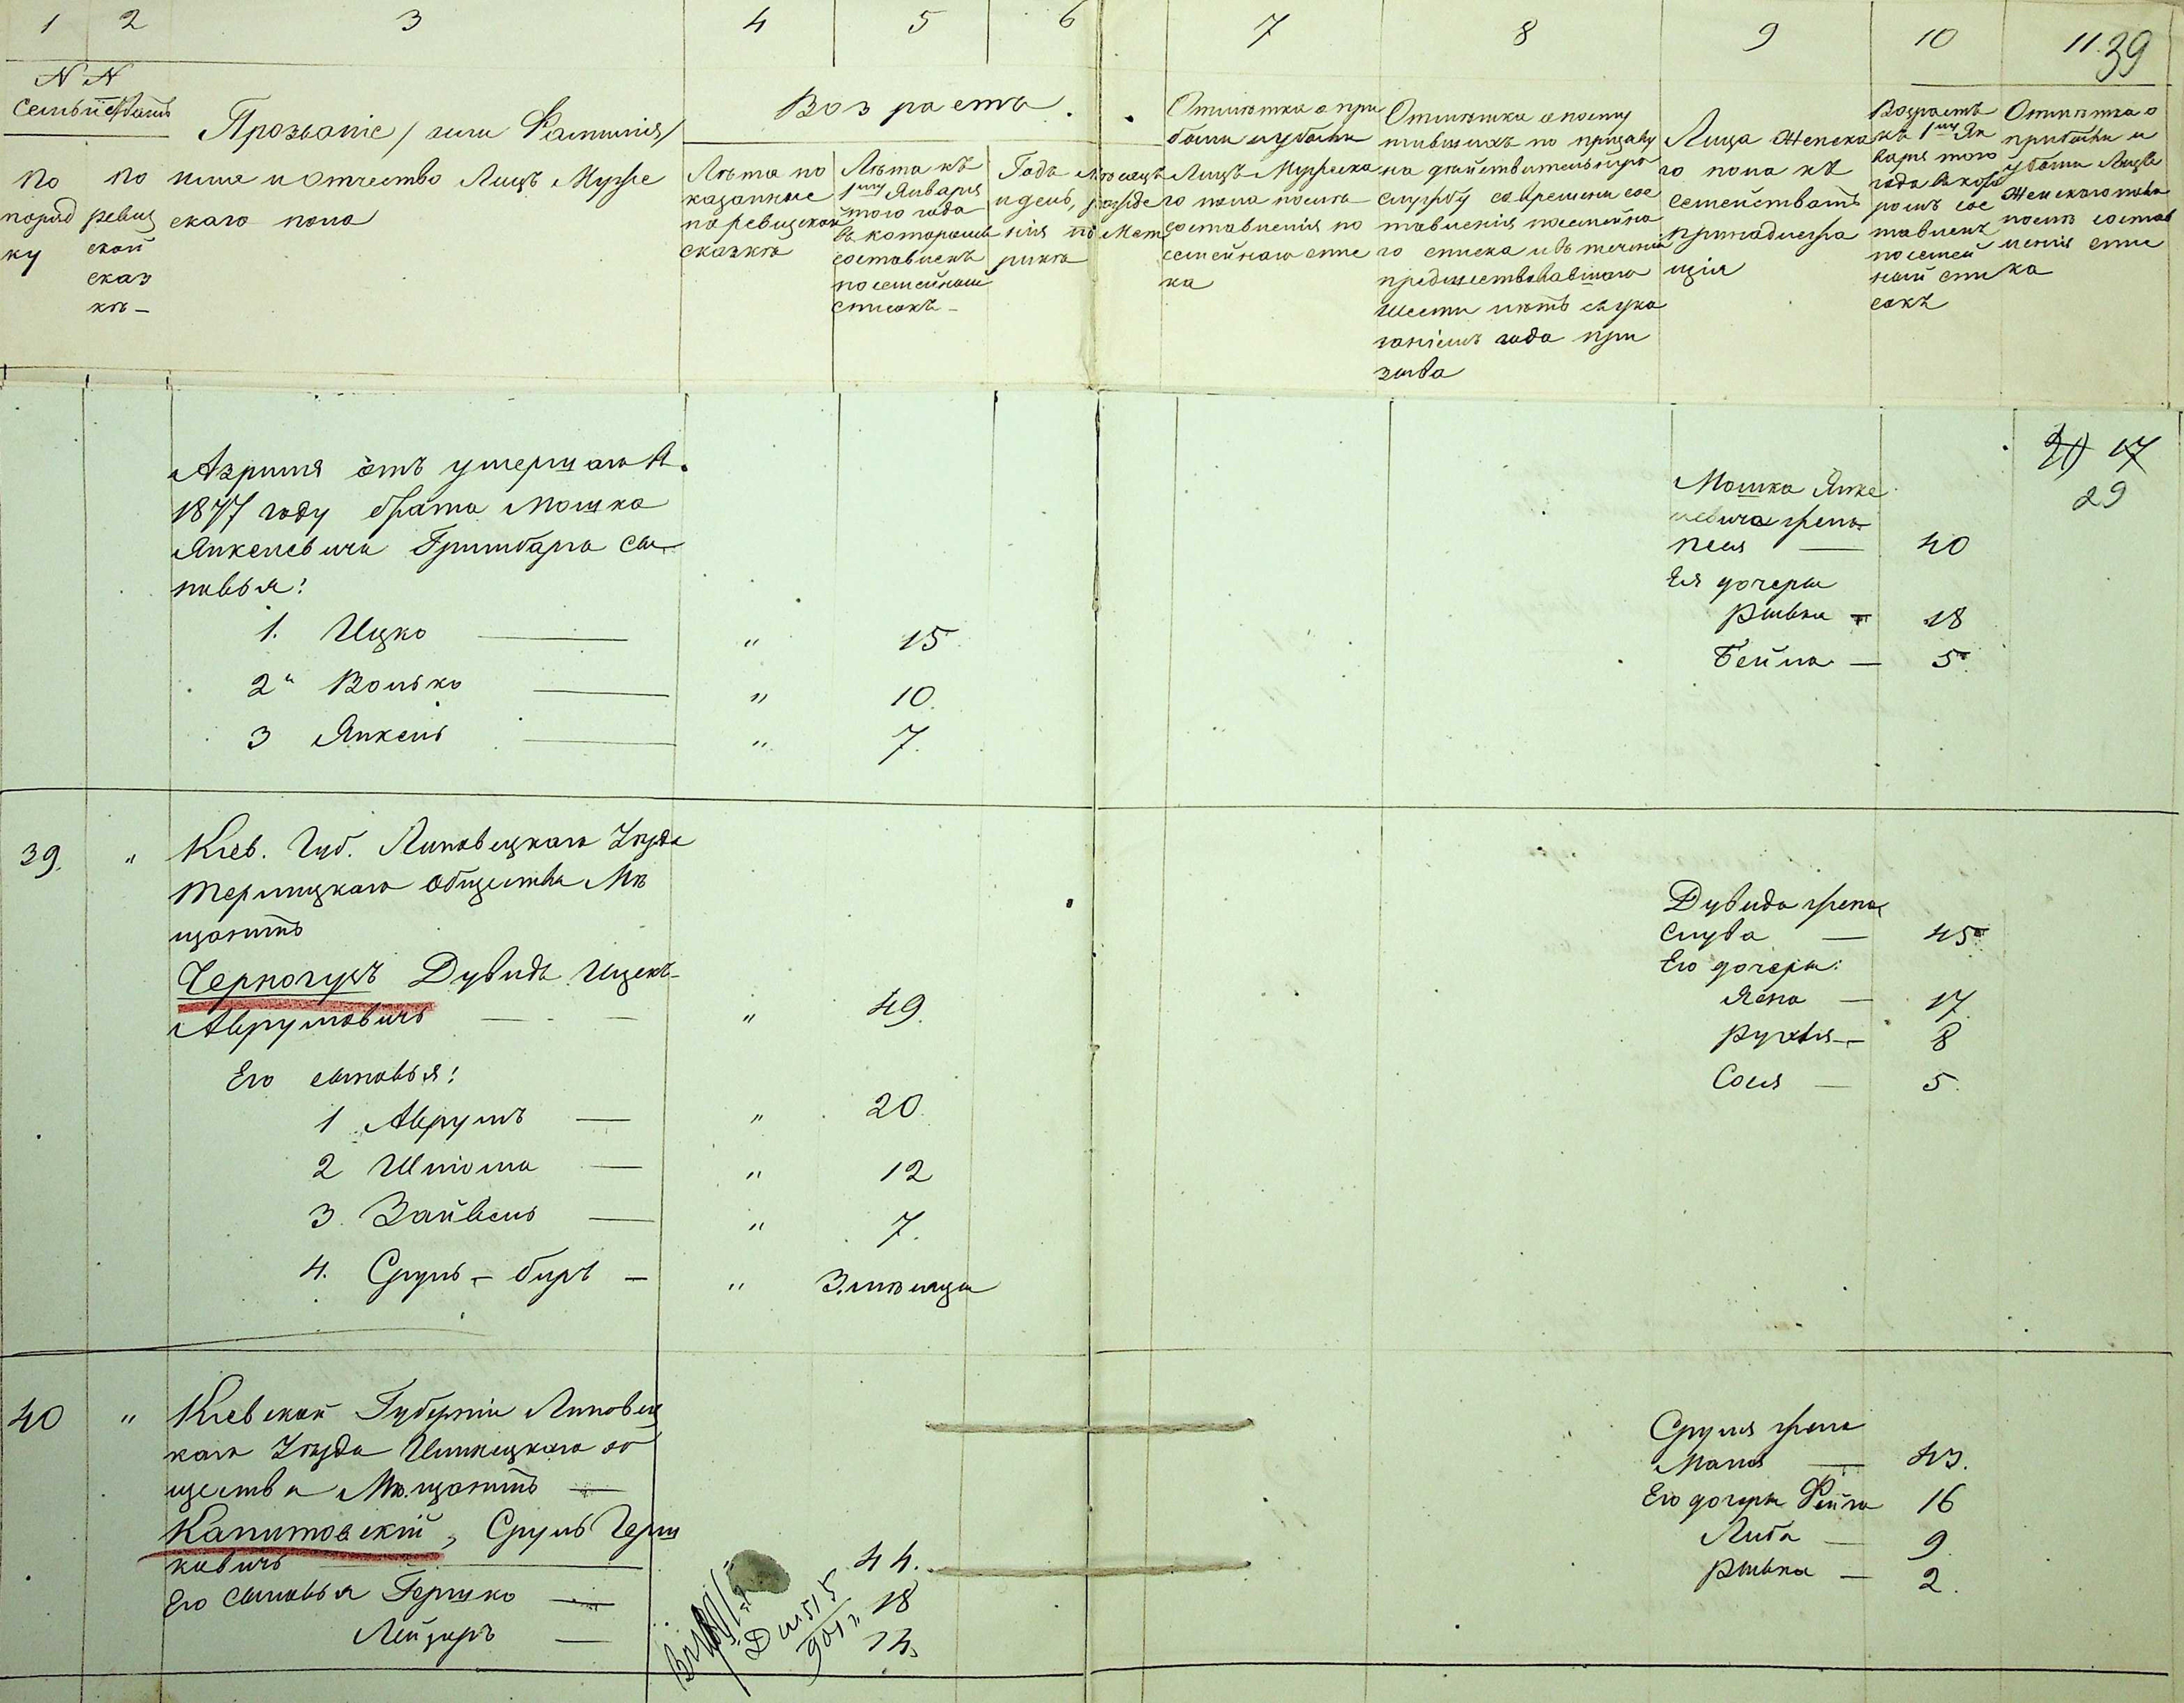 1 2 3 4 5 6 7 8 9 10 11. 39
N N
Семействъ
По поряд ку
по ревиз ской сказ кѣ –
Прозваніе / или Фамилія /
имя и отчество Лицъ Муже
скаго пола
Возрастъ.
Лѣта по
казанные
по ревизской
сказкѣ
Лѣта къ
1му Января
того года
въ которомъ
составленъ
посемейный
списокъ –
Годъ Мѣсяцъ
и день, рожде
нія по Мет
рикѣ
Отмѣтка о при
были и убыли
Лицъ Мужска
го пола послѣ
составленія по
семейнаго спис
ка
Отмѣтка о посту
пившихъ по призыву
на дѣйствительную
службу со времени сос
тавленія посемейна
го списка и въ теченіи
предшествовавшаго
шести лѣтъ съ ука
заніемъ года при
зыва
Лица Женска
го пола къ
семействамъ
принадлежа
щія
Возрастъ
къ 1му Ян
варя того
года въ кото
ромъ сос
тавленъ
посемей
ный спи
сокъ
Отмѣтка о
прибыли и
убыли Лицъ
Женскаго пола
послѣ состав
ленія спис
ка
Азриля отъ умершаго въ
1877 году брата Мошка
Янкелевича Гринбарга сы
новья:
1. Ицко — " 15
2" Волько — " 10.
3 Янкель — " 7.
Мошка Янке
левича жена
Песя — 40
Ея дочери
Рывка — 18
Бейла — 5.
17
29
39. " Кіев. Губ. Липовецкаго Уѣзда
Терлицкаго Общества Мѣ
щанинъ
Черногузъ Дувидъ Ицекъ-
Аврумовичъ — " 49.
Его сыновья:
1 Аврумъ — " 20
2 Шліома — " 12
3. Зайвель — " 7.
4. Сруль – биръ – " 3. мѣсяцы
Дувида жена
Слува — 45
Его дочери:
Яена — 17.
Рухля — 8
Сося — 5.
40 " Кіевской Губерніи Липовец
каго Уѣзда Илинецкаго об
щества Мѣщанинъ —
Капитовскій, Сруль Герш
ковичъ — 44.
Его сыновья Гершко — 18
Лейзеръ — 13
Д № 515
901 г.
Сруля жена
Маля — 43.
Его дочери Фейга 16
Либа — 9
Рывка — 2.